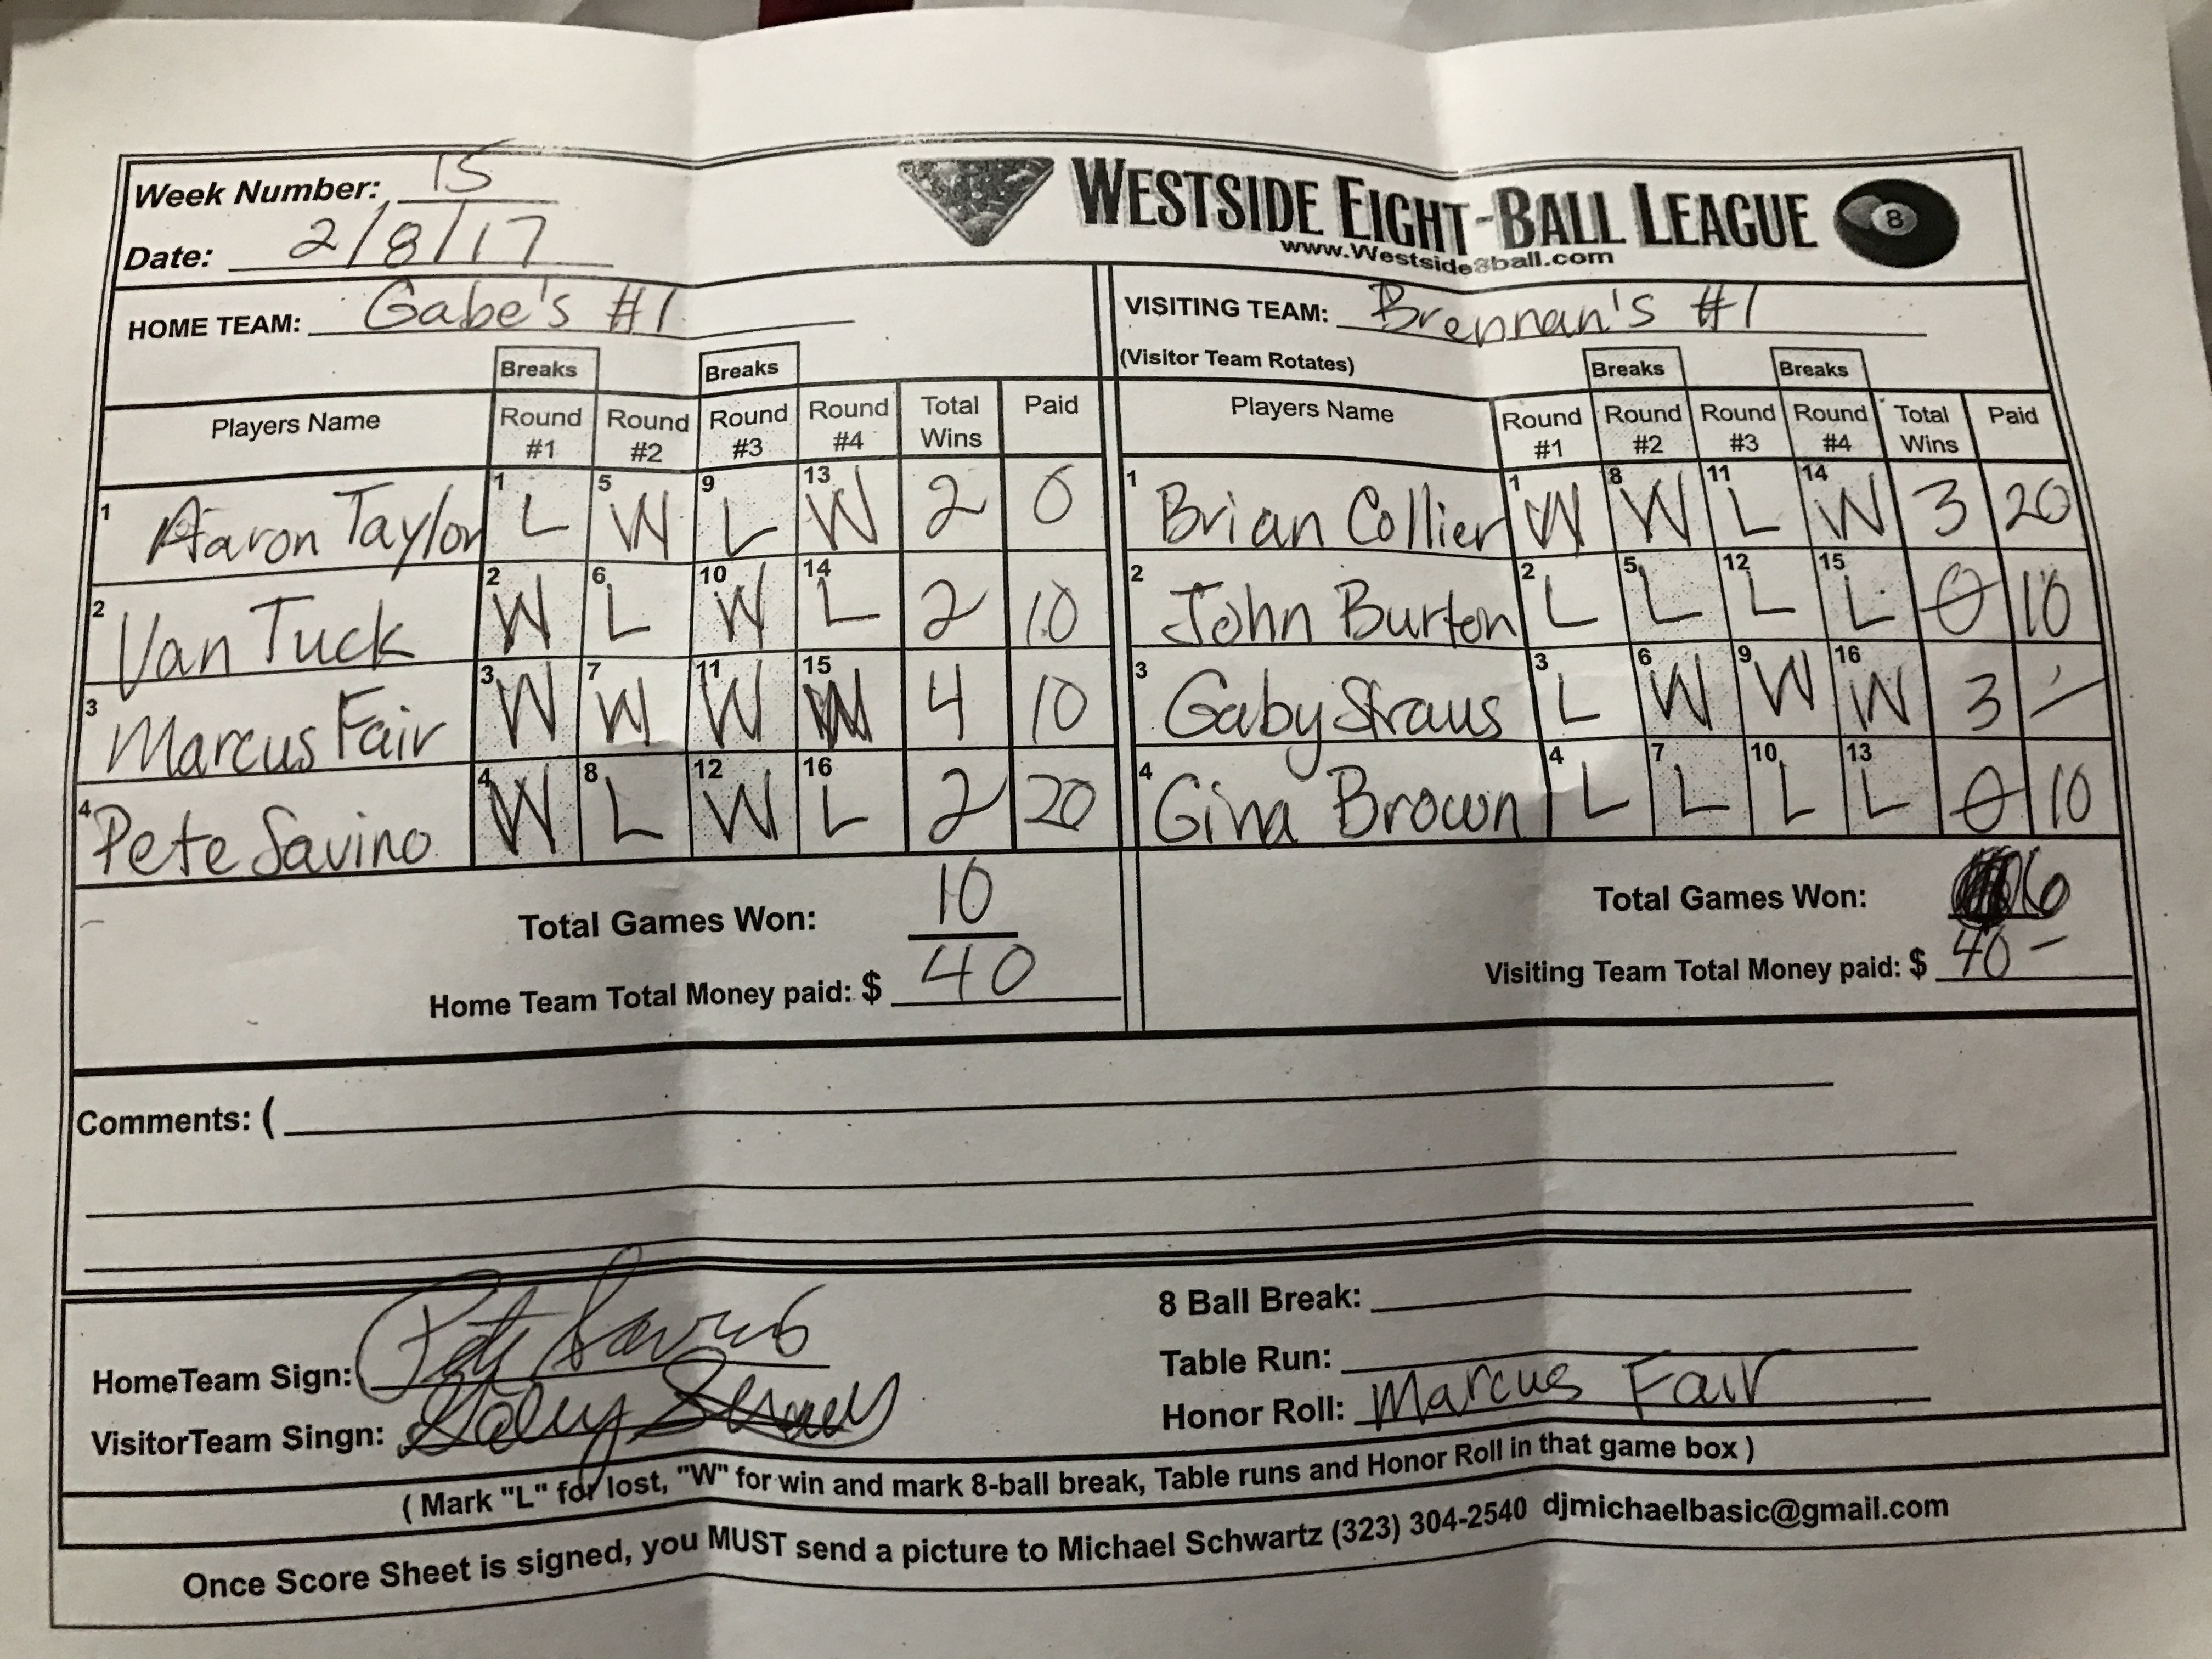 Week Number: 15
Date: 2/8/17
WESTSIDE EIGHT-BALL LEAGUE
8
www.Westside8ball.com
HOME TEAM: Gabe's #1
VISITING TEAM: Brennan's #1
(Visitor Team Rotates)
Breaks Breaks
Breaks Breaks
Players Name Round #1 Round #2 Round #3 Round #4 Total Wins Paid
Players Name Round #1 Round #2 Round #3 Round #4 Total Wins Paid
1 Aaron Taylor 1 L 5 W 9 L 13 W 2 0
1 Brian Collier 1 W 8 W 11 L 14 W 3 20
2 Van Tuck 2 W 6 L 10 W 14 L 2 10
2 John Burton 2 L 5 L 12 L 15 L 0 10
3 Marcus Fair 3 W 7 W 11 W 15 W 4 10
3 Gaby Straus 3 L 6 W 9 W 16 W 3 -
4 Pete Savino 4 W 8 L 12 W 16 L 2 20
4 Gina Brown 4 L 7 L 10 L 13 L 0 10
Total Games Won: 10
Home Team Total Money paid: $ 40
Total Games Won: 6
Visiting Team Total Money paid: $ 40 -
Comments: (
HomeTeam Sign: Pete Savino
VisitorTeam Singn: Gaby Straus
8 Ball Break:
Table Run:
Honor Roll: Marcus Fair
( Mark "L" for lost, "W" for win and mark 8-ball break, Table runs and Honor Roll in that game box )
Once Score Sheet is signed, you MUST send a picture to Michael Schwartz (323) 304-2540 djmichaelbasic@gmail.com